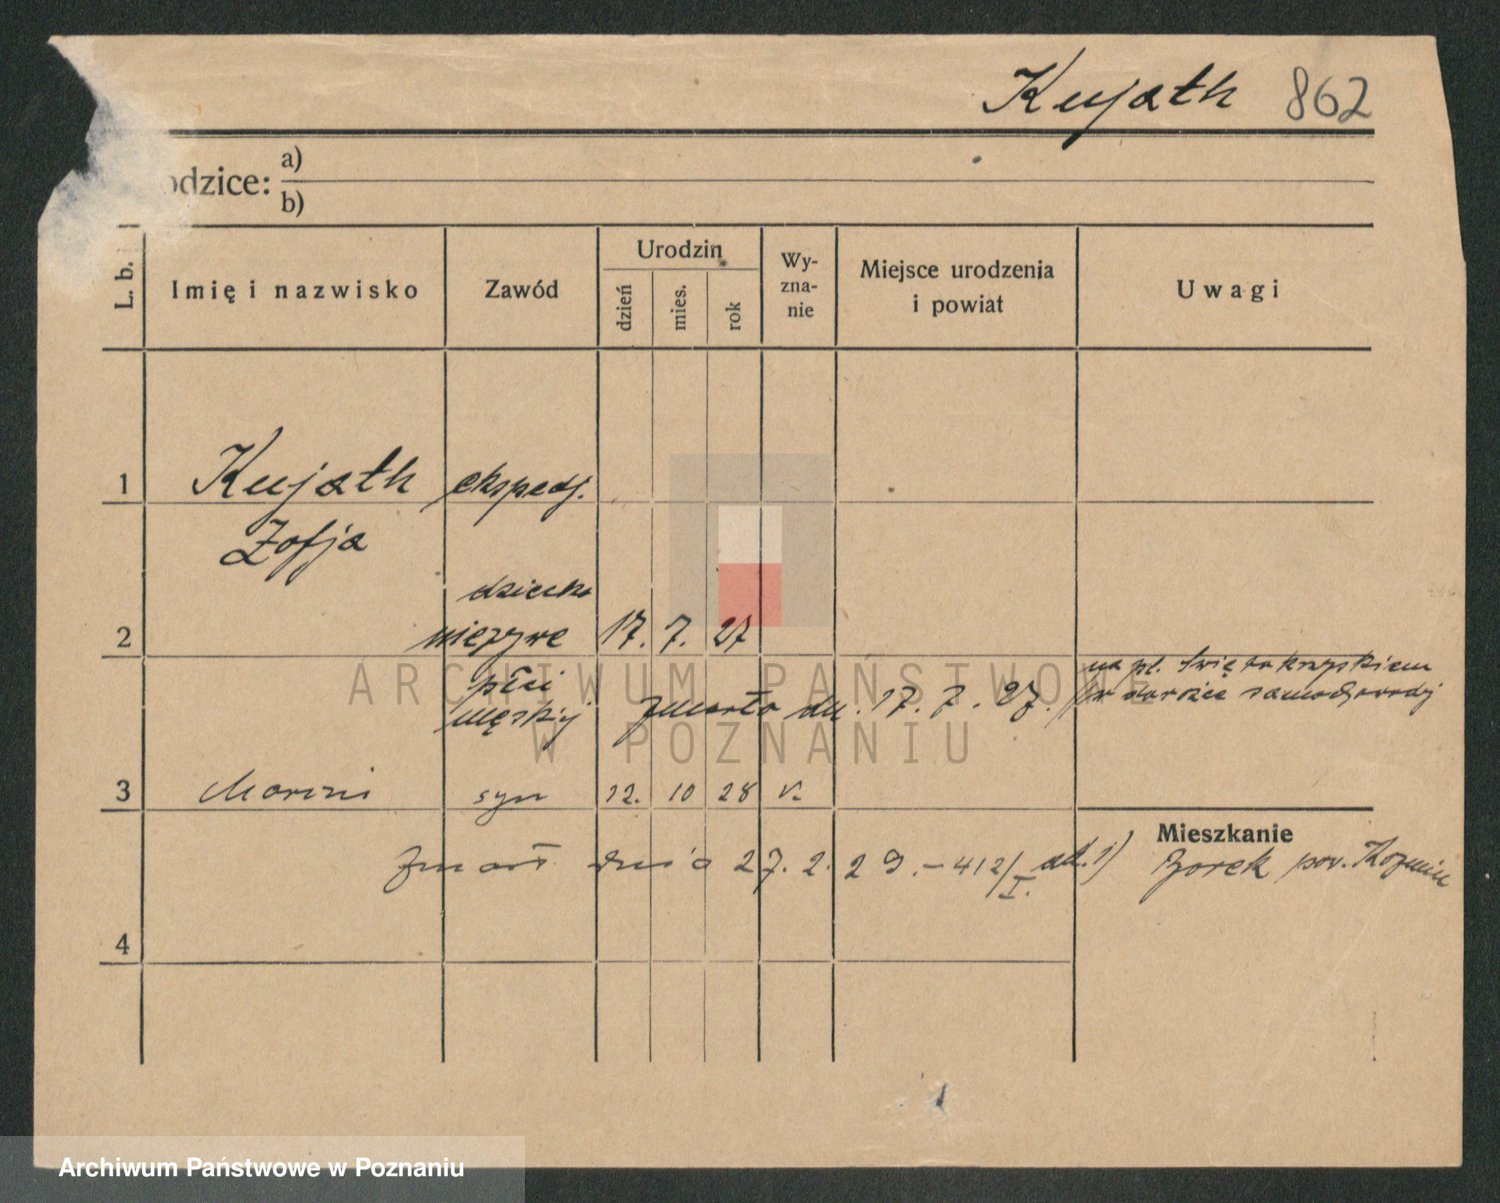 Kujath 862
odzice: a)
b)
L. b.
Imię i nazwisko
Zawód
Urodzin
dzień
mies.
rok
Wy-
zna-
nie
Miejsce urodzenia
i powiat
Uwagi
1 Kujath ekspedj.
Zofja
dziecko
2 nieżywe 17. 7. 27
płci
męskiej zmarło dn. 17. 7. 27.
na pl. Świętokrzyskiem
w dorożce samochodowej
3 syn 12. 10 28 k.
Mieszkanie
zmarł dnia 27. 2. 29. – 412/I. ak. i) Borek pow. Koźmin
4
ARCHIWUM PAŃSTWOWE
W POZNANIU
Archiwum Państwowe w Poznaniu